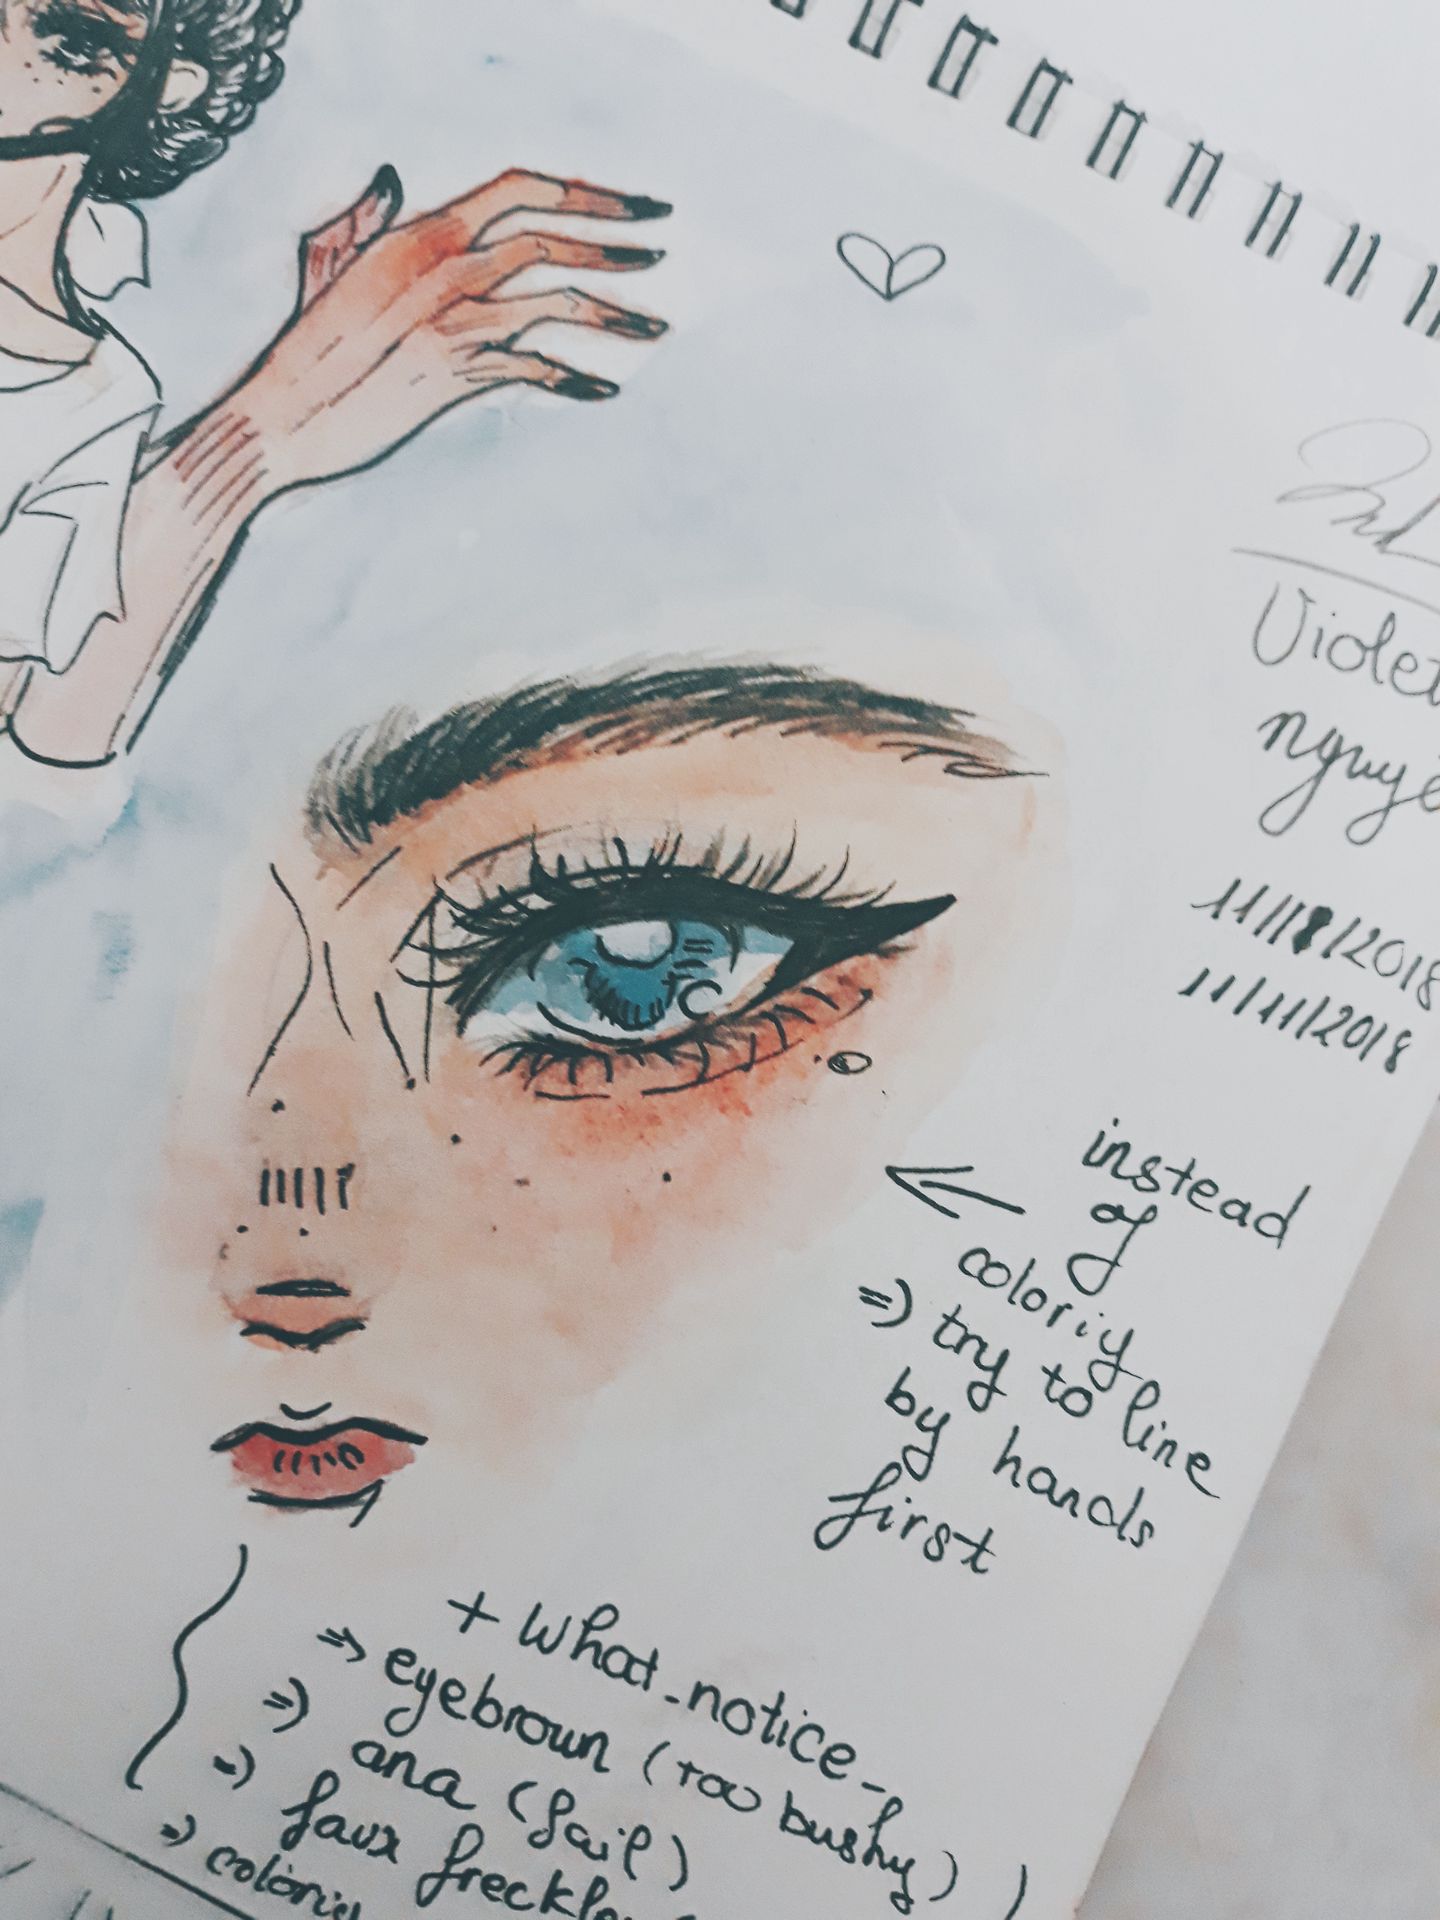 Violet
nguyễ
11/18/2018
11/11/2018
instead
of
coloriy
=) try to line
by hands
first
+ What_notice_
=) eyebrown (too bushy)
=) ana (fail)
=) faux freckle
=) coloriy